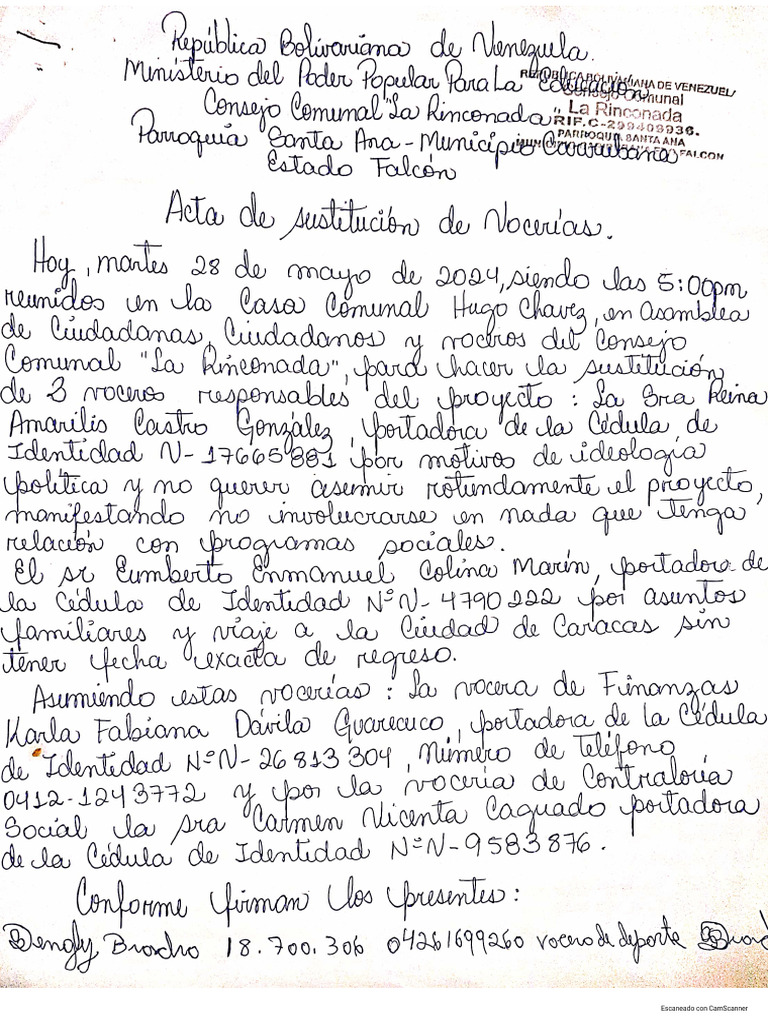 República Bolivariana de Venezuela.
Ministerio del Poder Popular Para La Educación
Consejo Comunal "La Rinconada"
Parroquia Santa Ana - Municipio Carirubana
Estado Falcón
REPÚBLICA BOLIVARIANA DE VENEZUELA
Consejo Comunal
La Rinconada
RIF.C-299409936.
PARROQUIA SANTA ANA
FALCON
Acta de sustitución de Vocerías.
Hoy, martes 28 de mayo de 2024, siendo las 5:00pm
reunidos en la Casa Comunal Hugo Chavez, en Asamblea
de Ciudadanas, Ciudadanos y voceros del Consejo
Comunal "La Rinconada", para hacer la sustitución
de 2 voceros responsables del proyecto: La Sra Reina
Amarilis Castro González, portadora de la Cédula de
Identidad V-17665881 por motivos de ideología
política y no querer asumir rotundamente el proyecto,
manifestando no involucrarse en nada que tenga
relación con programas sociales.
El sr Eumberto Enmanuel Colina Marín, portadora de
la Cédula de Identidad NºV-4790222 por asuntos
familiares y viaje a la Ciudad de Caracas sin
tener fecha exacta de regreso.
Asumiendo estas vocerías: La vocera de Finanzas
Karla Fabiana Dávila Guarecuco, portadora de la Cédula
de Identidad NºV-26813304, Número de Teléfono
0412-1243772 y por la vocería de Contraloría
Social la sra Carmen Vicenta Caguado portadora
de la Cédula de Identidad NºV-9583876.
Conforme firman los presentes:
18.700.306 04261699260 vocero de deporte
Escaneado con CamScanner